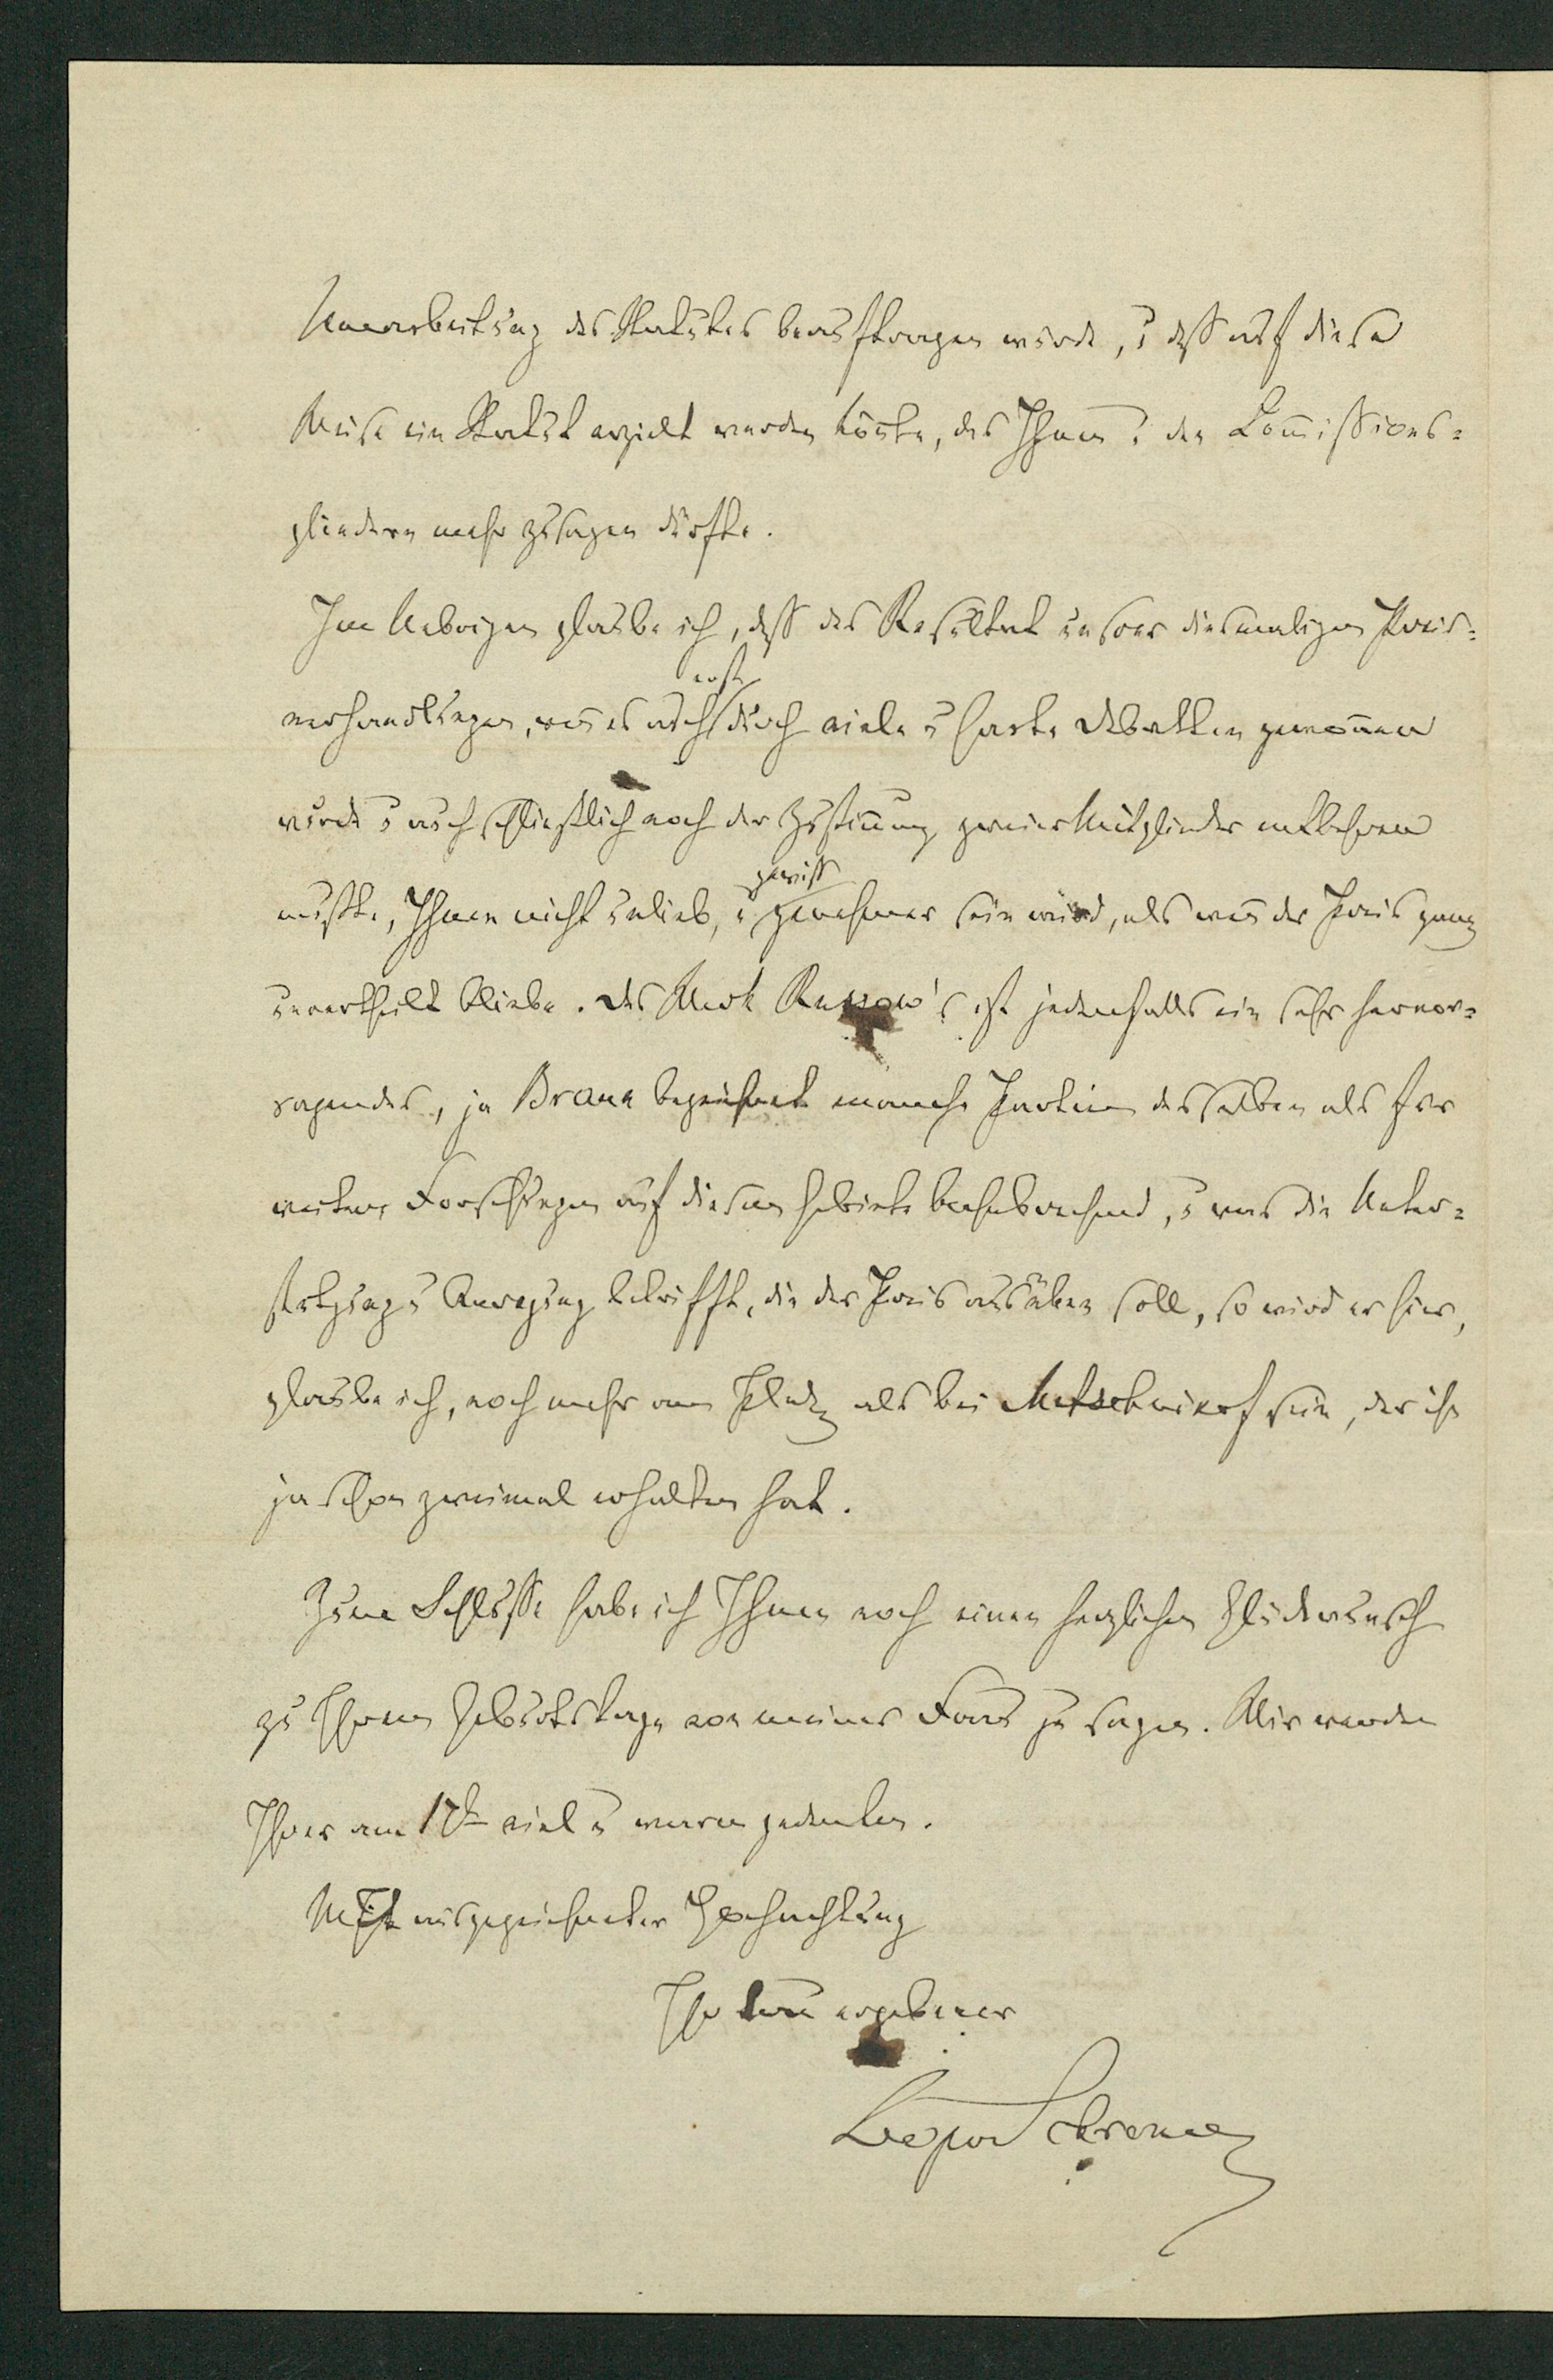 Umarbeitung des Statutes beauftragen würde, u dass auf diese
Weise ein Statut erzielt werden könte, das Ihnen u. den Comissions-
gliedern mehr zusagen dürfte.
Im Uebrigen glaube ich, dass das Resultat unsrer diesmaligen Preis-
erst
verhandlungen, wen es auch durch viele u harte Debatten gewonen
wurde u auch schließlich noch der Zustimung zweier Mitglieder entbehren
gewiss
musste, Ihnen nicht unlieb, u genehmer sein wird, als wen der Preis ganz
unvertheilt bliebe. Das Werk Russow's ist jedenfalls ein sehr hervor-
ragendes, ja Braun bezeichnet manche Partien desselben als für
weitere Forschungen auf diesem Gebiete bahnbrechend, u was die Unter-
stützung u Anregung betrifft, die der Preis ausüben soll, so wird er hier,
glaube ich, noch mehr am Platz als bei Metschnikof sein, der ihn
ja schon zweimal erhalten hat.
Zum Schlusse habe ich Ihnen noch einen herzlichen Glückwunsch
zu Ihrem Geburtstage von meiner Frau zu sagen. Wir werden
Ihrer am 17t viel u warm gedenken.
Mit ausgezeichneter Hochachtung
Ihr treu ergebener
Leopold Schrenck